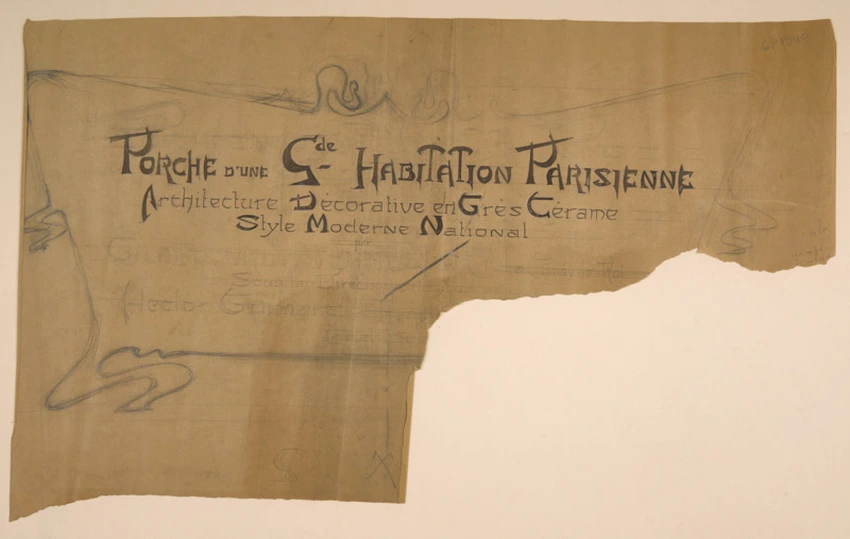 PORCHE D'UNE Gde HABITATION PARISIENNE
Architecture Décorative en Grès Cérame
Style Moderne National
Sous la Direction
Hector Guimard